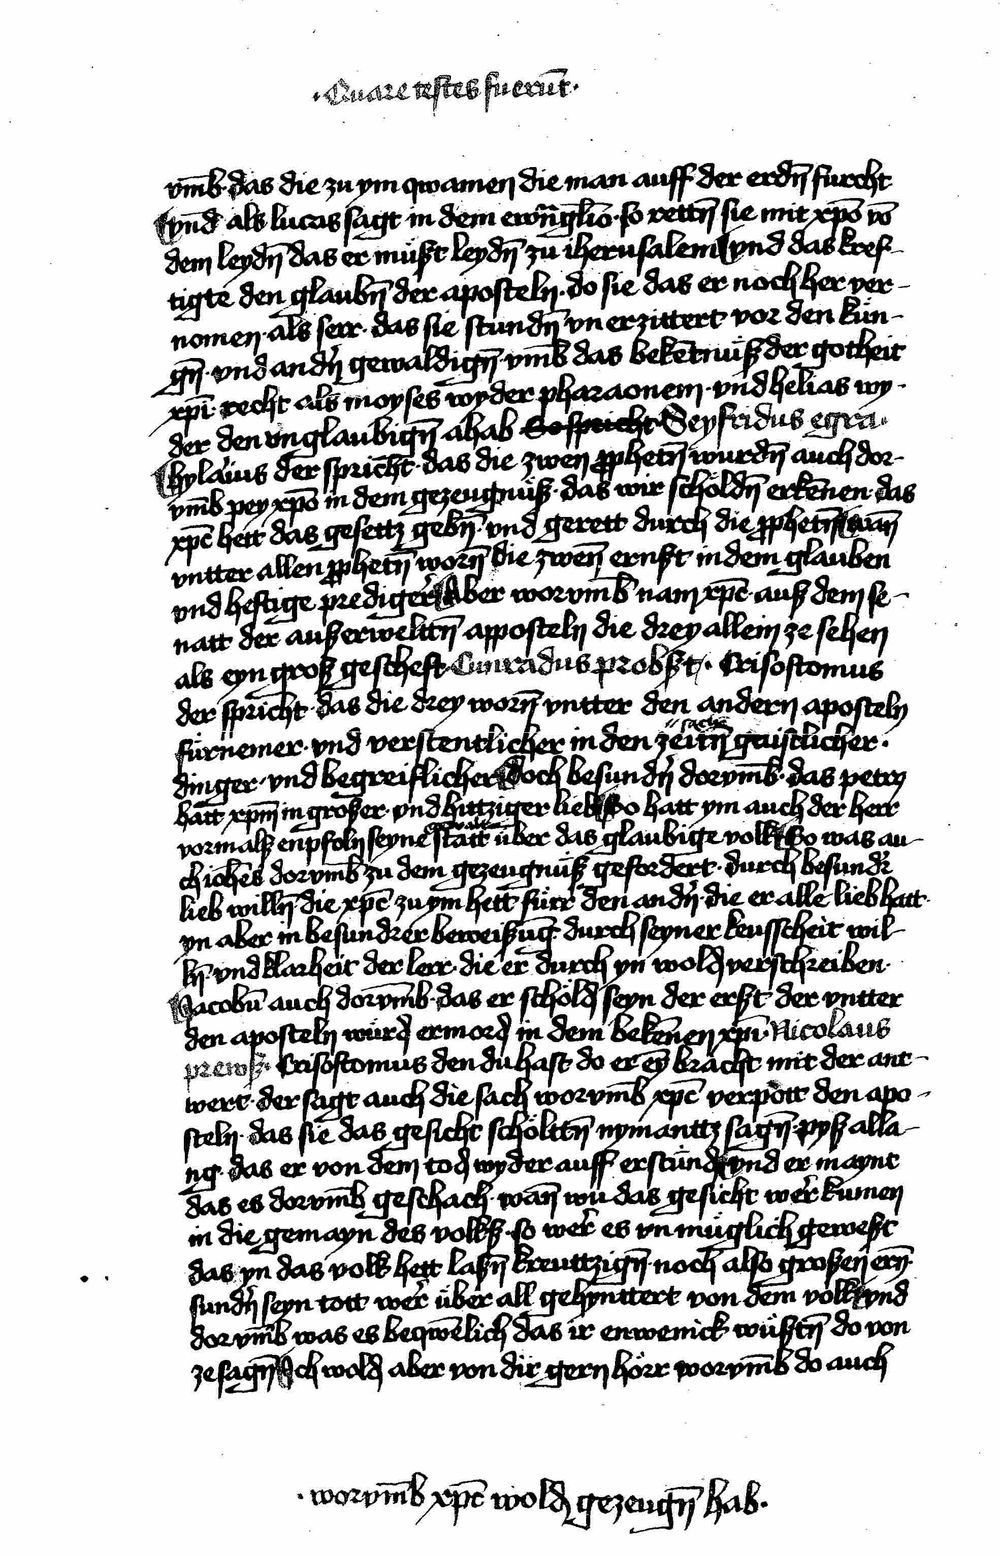 · Quare testes fuerūt ·
vm̄b · das die zu ym qwamen die man auff der erdn̄ furcht
vnd als lucas sagt in dem ewn̄glio · so rettn̄ sie mit xpō vō
dem leydn̄ das er müst leydn̄ zu iherusalem vnd das kref-
tigte den glaubn̄ der aposteln · do sie das er noch her ver-
nomen · als serr · das sie stundn̄ vnerzittert vor den kün-
gn̄ · vnd andn̄ gewaldign̄ · vm̄b das bekētnüsz der gotheit
xpī · recht als moyses wyder pharaonem · vnd helias wy-
der den vnglaubign̄ ahab So spricht · Seyfridus egra ·
hylarius der spricht · das die zwen pphetn̄ wurdn̄ auch dor-
vm̄b pey xpō in dem gezeugnüsz · das wir schöldn̄ erkēnen · das
xpc̄ hett das gesettz gebn̄ · vnd gerett durch die pphetn̄ wan̄
vntter allen pphetn̄ worn̄ die zwen ernst in dem glauben
vnd heftige prediger Aber worvm̄b nam xpc̄ · ausz dem se-
natt der auszerweltn̄ apposteln die drey allein ze sehen
als eyn grosz gescheft · Conradus probszt · Crisostomus
der spricht · das die drey worn̄ vntter den andern aposteln
fürnemer · vnd verstentlicher in den zeitn̄ sache gaistlicher ·
dinger · vnd begreiflicher Doch besundn̄ dorvm̄b · das petrus
hatt xpm̄ in groszer · vnd hittziger lieb So hatt ym auch der herr
vormalsz enpfoln seyne statt über das glaubige volk So was au-
ch iohēs dorvm̄b zu dem gezeugnüsz gefordert · durch besundr̄
lieb willn̄ die xpc̄ zu ym hett fürr den andn̄ · die er alle lieb hatt ·
yn aber in besundrer beweiszūg durch seyner keusscheit wil-
ln̄ · vnd klarheit der lerr · die er durch yn wold verschreiben ·
Jacobū auch dorvm̄b · das er schöld seyn der erszt der vntter
den aposteln würd ermord in dem bekēnen xpī · Nicolaus
prewsz · Crisostomus den du hast do er ey bracht mit der ant-
wert · der sagt auch die sach worvm̄b xpc̄ verpott den apo-
steln · das sie das gesicht schölttn̄ nymanttz sagn̄ · pysz alla-
ng · das er von dem tod wyder auff erstünd vnd er maynt
das es dorvm̄b geschach · wan̄ wu das gesicht wer kumen
in die gemayn des volksz · so wer es vnmüglich gewest
das yn das volk hett laszn̄ kreuttzign̄ · noch also groszen ern̄ ·
sundn̄ seyn tott wer über all gehynttert von dem volk vnd
dorvm̄b was es beqwēlich das ir enwenick wüsztn̄ do von
ze sagn̄ Ich wold aber von dir gern hörr worvm̄b do auch
· worvm̄b xpc̄ wold gezeugn̄ hab ·